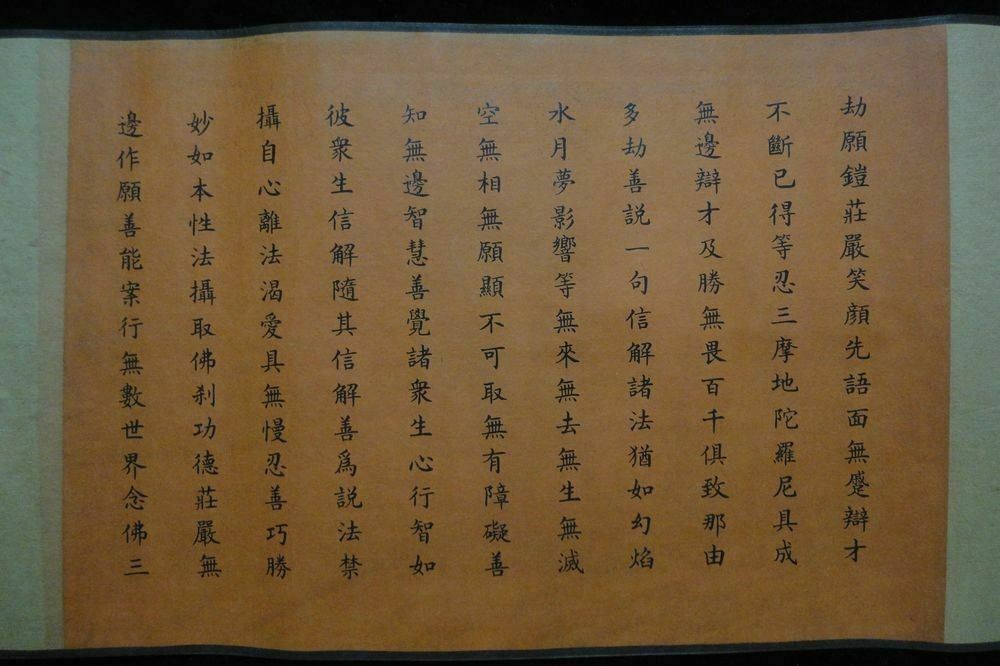 劫願鎧莊嚴笑顔先語面無蹙辯才
不斷已得等忍三摩地陀羅尼具成
無邊辯才及勝無畏百千俱致那由
多劫善説一句信解諸法猶如幻焰
水月夢影響等無來無去無生無滅
空無相無願顯不可取無有障礙善
知無邊智慧善覺諸衆生心行智如
彼衆生信解隨其信解善爲説法禁
攝自心離法渴愛具無慢忍善巧勝
妙如本性法攝取佛刹功德莊嚴無
邊作願善能案行無數世界念佛三